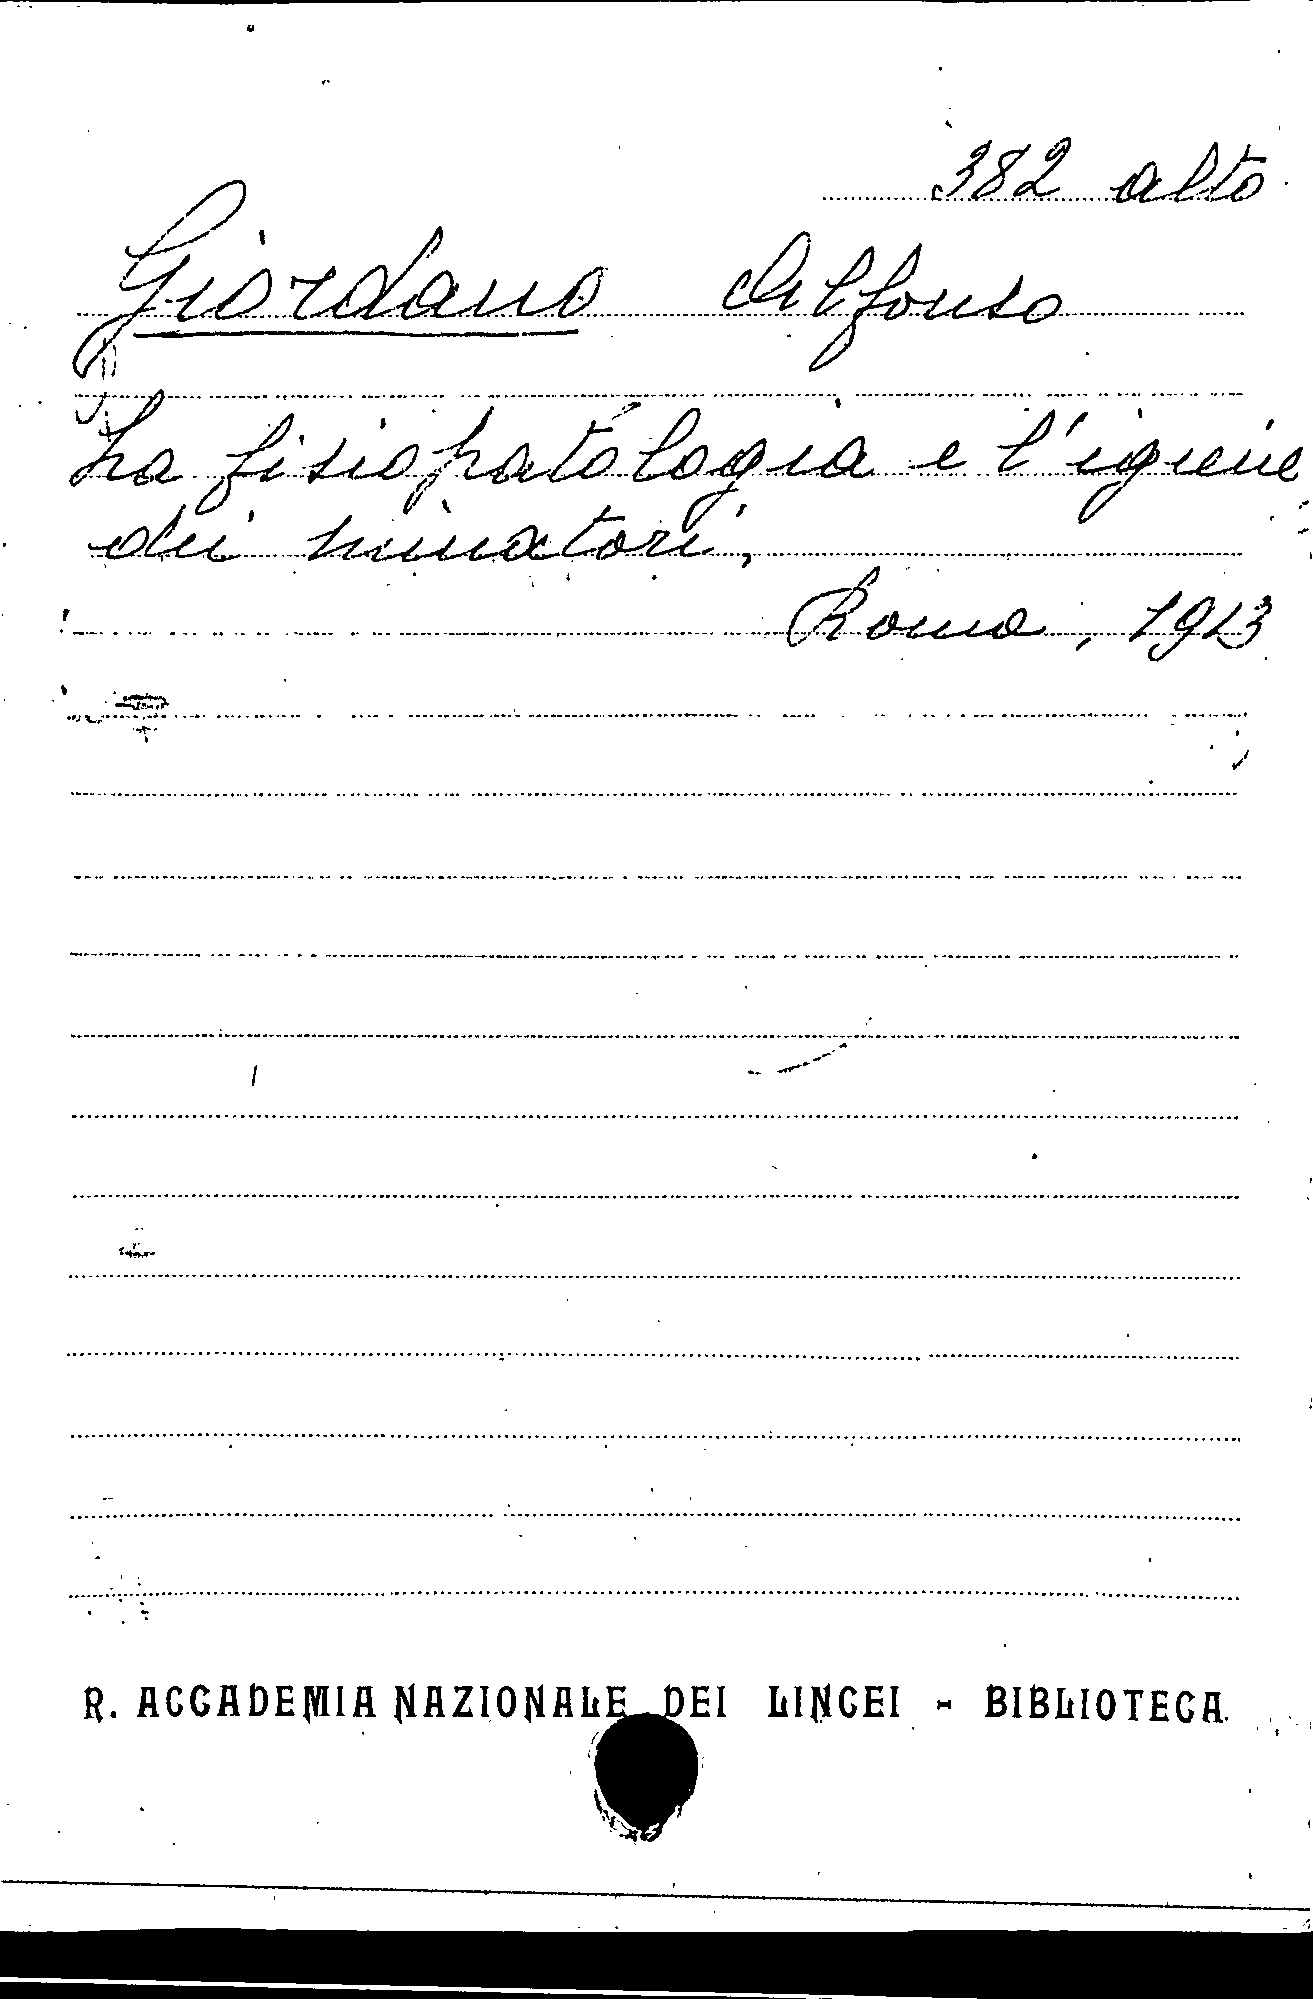 382 alto
Giordano Alfonso
La fisiopatologia e l'igiene
dei minatori,
Roma, 1913
R. ACCADEMIA NAZIONALE DEI LINCEI - BIBLIOTECA